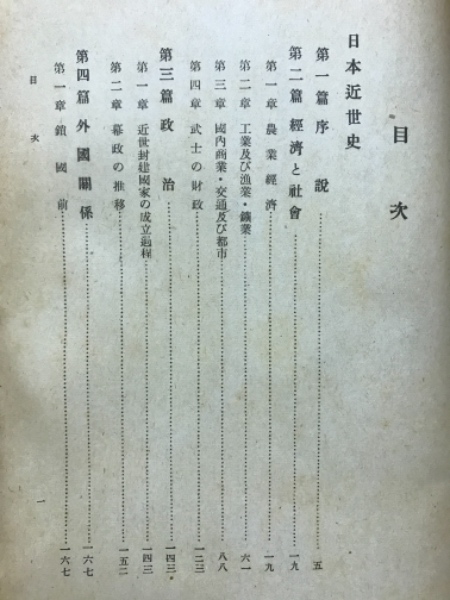 目次
日本近世史
第一篇 序說……五
第二篇 經濟と社會……一九
第一章 農業經濟……一九
第二章 工業及び漁業・鑛業……六一
第三章 國內商業・交通及び都市……八八
第四章 武士の財政……一二三
第三篇 政治……一四三
第一章 近世封建國家の成立過程……一四三
第二章 幕政の推移……一五二
第四篇 外國關係……一六七
第一章 鎖國前……一六七
目次 一